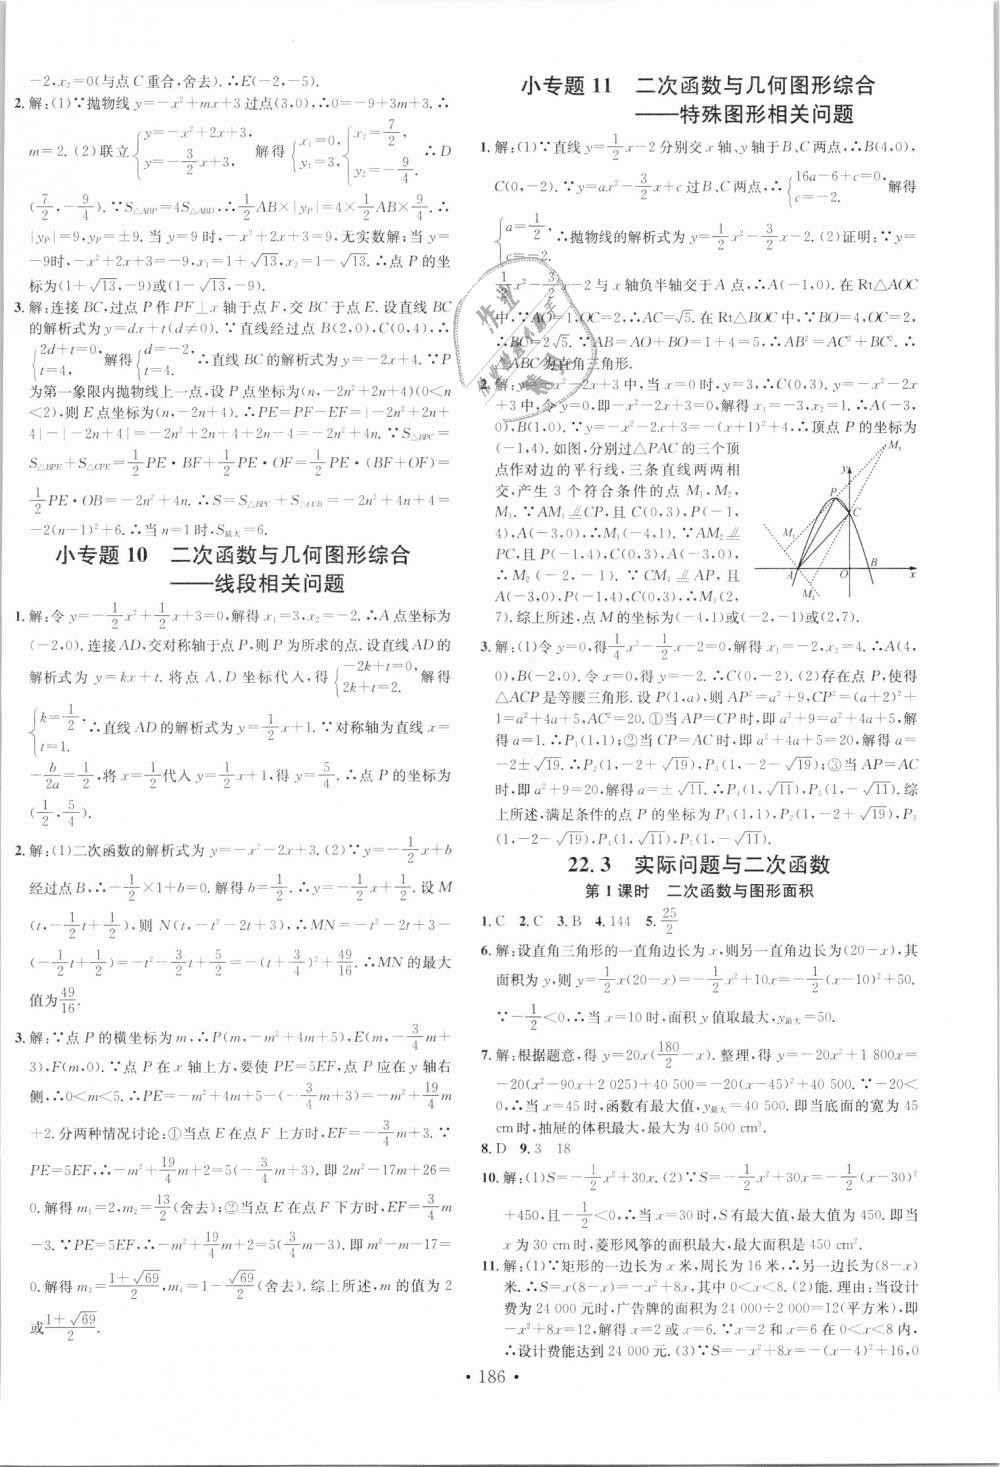 -2,x₂=0(与点C重合,舍去).∴E(-2,-5).
2.解:(1)∵抛物线y=-x²+mx+3过点(3,0),∴0=-9+3m+3.∴
m=2.(2)联立{y=-x²+2x+3,y=-3/2x+3,解得{x₁=0,y₁=3,{x₂=7/2,y₂=-9/4.∴D
(7/2,-9/4).∵S△ABP=4S△ABD,∴1/2AB×|yP|=4×1/2AB×9/4.∴
|yP|=9,yP=±9.当y=9时,-x²+2x+3=9,无实数解;当y=
-9时,-x²+2x+3=-9,x₁=1+√13,x₂=1-√13.∴点P的坐
标为(1+√13,-9)或(1-√13,-9).
3.解:连接BC,过点P作PF⊥x轴于点F,交BC于点E.设直线BC
的解析式为y=dx+t(d≠0).∵直线经过点B(2,0),C(0,4),∴
{2d+t=0,t=4,解得{d=-2,t=4.∴直线BC的解析式为y=-2x+4.∵P
为第一象限内抛物线上一点,设P点坐标为(n,-2n²+2n+4)(0<n
<2),则E点坐标为(n,-2n+4).∴PE=PF-EF=|-2n²+2n+
4|-|-2n+4|=-2n²+2n+4+2n-4=-2n²+4n.∵S△BPC=
S△BPE+S△CPE=1/2PE·BF+1/2PE·OF=1/2PE·(BF+OF)=
1/2PE·OB=-2n²+4n.∴S=S△BPC+S△OCB=-2n²+4n+4=
-2(n-1)²+6.∴当n=1时,S最大=6.
小专题10 二次函数与几何图形综合
——线段相关问题
1.解:令y=-1/2x²+1/2x+3=0,解得x₁=3,x₂=-2.∴A点坐标为
(-2,0).连接AD,交对称轴于点P,则P为所求的点.设直线AD的
解析式为y=kx+t.将点A、D坐标代人,得{-2k+t=0,2k+t=2.解得
{k=1/2,t=1.∴直线AD的解析式为y=1/2x+1.∵对称轴为直线x=
-b/2a=1/2,将x=1/2代入y=1/2x+1,得y=5/4.∴点P的坐标为
(1/2,5/4).
2.解:(1)二次函数的解析式为y=-x²-2x+3.(2)∵y=-1/2x+b
经过点B,∴-1/2×1+b=0.解得b=1/2.∴y=-1/2x+1/2.设M
(t,-1/2t+1/2),则N(t,-t²-2t+3).∴MN=-t²-2t+3-
(-1/2t+1/2)=-t²-3/2t+5/2=-(t+3/4)²+49/16.∴MN的最大
值为49/16.
3.解:∵点P的横坐标为m,∴P(m,-m²+4m+5),E(m,-3/4m+
3),F(m,0).∵点P在x轴上方,要使PE=5EF,点P应在y轴右
侧,∴0<m<5.∴PE=-m²+4m+5-(-3/4m+3)=-m²+19/4m
+2.分两种情况讨论:①当点E在点F上方时,EF=-3/4m+3.∵
PE=5EF,∴-m²+19/4m+2=5(-3/4m+3).即2m²-17m+26=
0.解得m₁=2,m₂=13/2(舍去);②当点E在点F下方时,EF=3/4m
-3.∵PE=5EF,∴-m²+19/4m+2=5(3/4m-3).即m²-m-17=
0.解得m₃=(1+√69)/2,m₄=(1-√69)/2(舍去).综上所述,m的值为2
或(1+√69)/2.
小专题11 二次函数与几何图形综合
——特殊图形相关问题
1.解:(1)∵直线y=1/2x-2分别交x轴、y轴于B、C两点,∴B(4,0),
C(0,-2).∵y=ax²-3/2x+c过B、C两点,∴{16a-6+c=0,c=-2.解得
{a=1/2,c=-2.∴抛物线的解析式为y=1/2x²-3/2x-2.(2)证明:∵y=
1/2x²-3/2x-2与x轴负半轴交于A点,∴A(-1,0).在Rt△AOC
中,∵AO=1,OC=2,∴AC=√5.在Rt△BOC中,∵BO=4,OC=2,
∴BC=2√5.∵AB=AO+BO=1+4=5,∴AB²=AC²+BC².
∴△ABC为直角三角形.
2.解:y=-x²-2x+3中,当x=0时,y=3,∴C(0,3).y=-x²-2x
+3中,令y=0,即-x²-2x+3=0,解得x₁=-3,x₂=1.∴A(-3,
0),B(1,0).∵y=-x²-2x+3=-(x+1)²+4,∴顶点P的坐标为
(-1,4).如图,分别过△PAC的三个顶
点作对边的平行线,三条直线两两相
交,产生3个符合条件的点M₁,M₂,
M₃.∵AM₁∥CP,且C(0,3),P(-1,
4),A(-3,0),∴M₁(-4,1).∵AM₂
∥CP,且P(-1,4),C(0,3),A(-3,0),
∴M₂(-2,-1).∵CM₃∥AP,且
A(-3,0),P(-1,4),C(0,3),∴M₃(2,
7).综上所述,点M的坐标为(-4,1)或(-2,-1)或(2,7).
y
M₃
P
C
M₁
A
O
B
x
M₂
3.解:(1)令y=0,得1/4x²-1/2x-2=0,解得x₁=-2,x₂=4.∴A(4,
0),B(-2,0).令x=0,得y=-2.∴C(0,-2).(2)存在点P,使得
△ACP是等腰三角形.设P(1,a),则AP²=a²+9,CP²=(a+2)²+
1=a²+4a+5,AC²=20.①当AP=CP时,即a²+9=a²+4a+5,解
得a=1.∴P₁(1,1);②当CP=AC时,即a²+4a+5=20,解得a=
-2±√19.∴P₂(1,-2+√19),P₃(1,-2-√19);③当AP=AC
时,即a²+9=20,解得a=±√11.∴P₄(1,√11),P₅(1,-√11).综
上所述,满足条件的点P的坐标为P₁(1,1),P₂(1,-2+√19),P₃
(1,-2-√19),P₄(1,√11),P₅(1,-√11).
22.3 实际问题与二次函数
第1课时 二次函数与图形面积
1.C 2.C 3.B 4.144 5.25/2
6.解:设直角三角形的一直角边长为x,则另一直角边长为(20-x),其
面积为y,则y=1/2x(20-x)=-1/2x²+10x=-1/2(x-10)²+50.
∵-1/2<0,∴当x=10时,面积y值取最大,y最大=50.
7.解:根据题意,得y=20x(180/2-x).整理,得y=-20x²+1 800x=
-20(x²-90x+2 025)+40 500=-20(x-45)²+40 500.∵-20<
0,∴当x=45时,函数有最大值,y最大=40 500.即当底面的宽为45
cm时,抽屉的体积最大,最大为40 500 cm³.
8.D 9.3 18
10.解:(1)S=-1/2x²+30x.(2)∵S=-1/2x²+30x=-1/2(x-30)²
+450,且-1/2<0,∴当x=30时,S有最大值,最大值为450.即当
x为30 cm时,菱形风筝的面积最大,最大面积是450 cm².
11.解:(1)∵矩形的一边长为x米,周长为16米,∴另一边长为(8-x)
米.∴S=x(8-x)=-x²+8x,其中0<x<8.(2)能.理由:当设计
费为24 000元时,广告牌的面积为24 000÷2 000=12(平方米),即
-x²+8x=12,解得x=2或x=6.∵x=2和x=6在0<x<8内,
∴设计费能达到24 000元.(3)∵S=-x²+8x=-(x-4)²+16,0
·186·